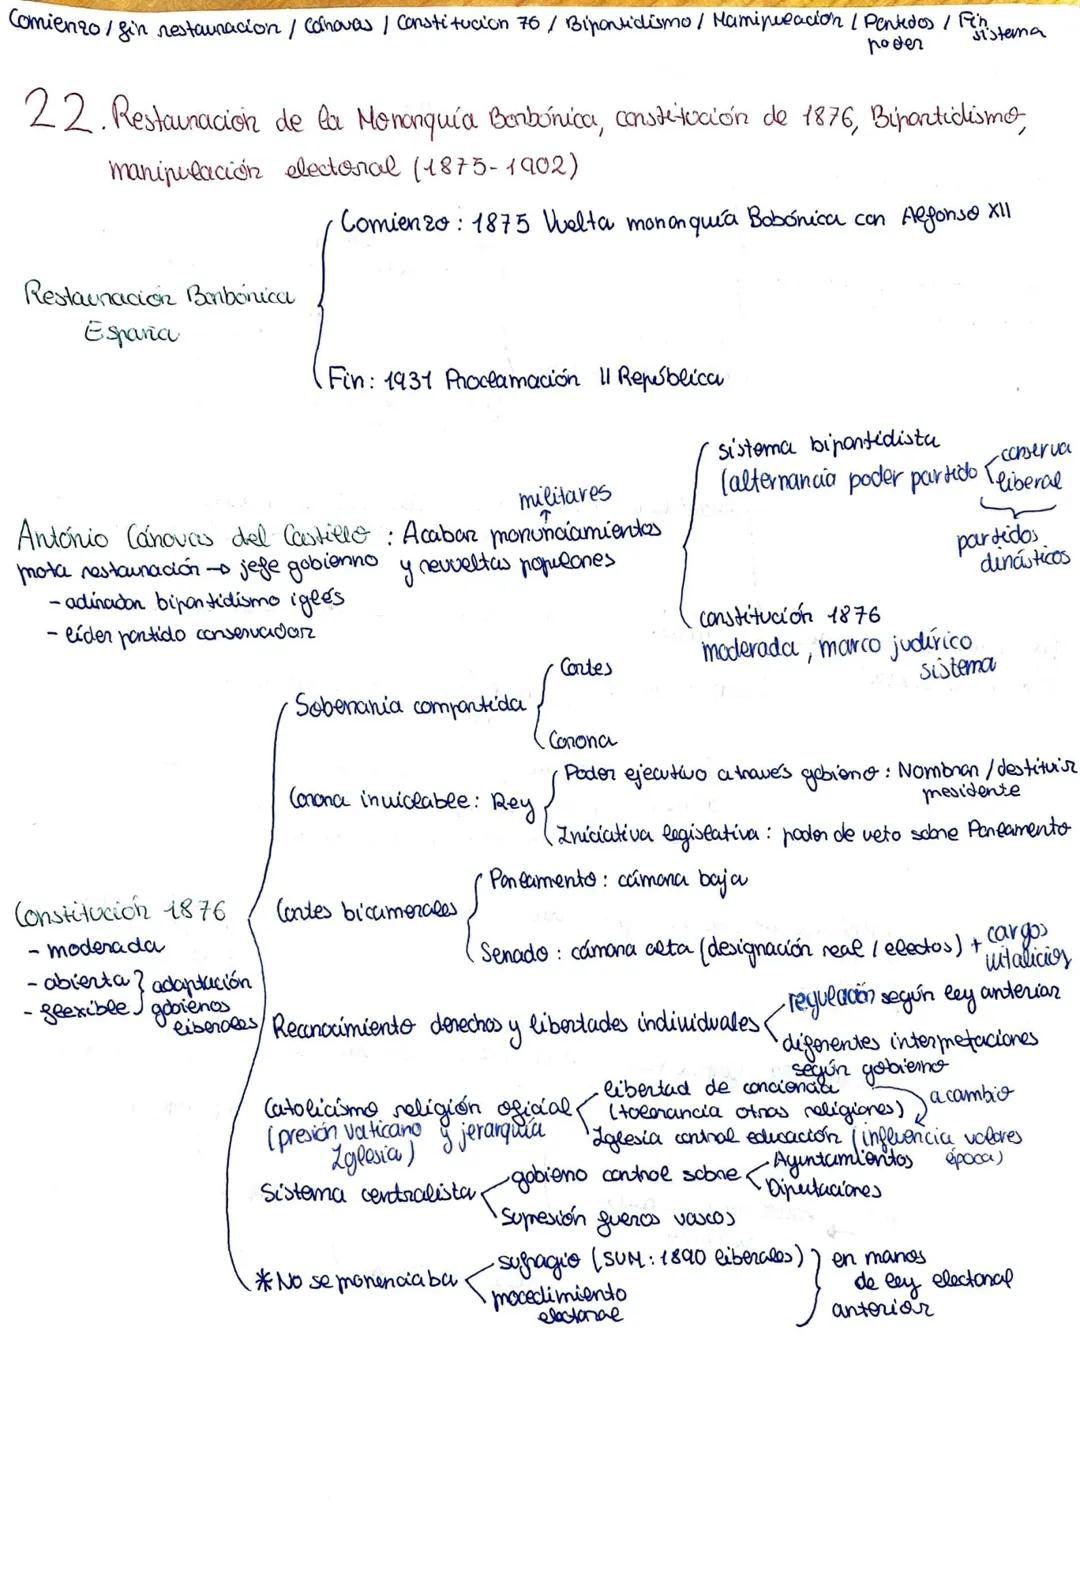 Comienzo / fin restauracion / Cánovas / Constitución 76 / Bipartidismo / Manipulación / Partidos poder / Fin sistema
22. Restauración de la Monarquía Borbónica, constitución de 1876, Bipartidismo,
manipulación electoral (1875-1902)
Comienzo: 1875 Vuelta monarquía Bobónica con Alfonso XII
Restauración Borbónica
España
Fin: 1931 Proclamación II República
sistema bipartidista
(alternancia poder partido
conserva
liberal
partidos
dinásticos
militares
António Cánovas del Castillo : Acabar pronunciamientos
mota restauración → jefe gobierno
y revueltas populares
- adinador bipartidismo iglés
- líder partido conservador
constitución 1876
moderada, marco judírico
sistema
Soberania compartida
Cortes
Corona
Corona inviolable: Rey
Poder ejecutivo a través gobierno: Nombrar / destituir
presidente
Iniciativa legislativa: poder de veto sobre Parlamento
Constitución 1876
- moderada
- abierta
- flexible
adaptación
gobienos
liberales
Cortes bicamerales
Parlamento: cámara baja
Senado: cámara alta (designación real / electos) + cargos
vitalicios
Reconocimiento derechos y libertades individuales
regulación según ley anterior
diferentes interpretaciones
según gobierno
Catolicismo religión oficial
(presión vaticano y jerarquía
Iglesia)
libertad de conciencia
(tolerancia otras religiones)
a cambio
Iglesia control educación (influencia valores
época)
Sistema centralista
gobieno control sobre
Ayuntamientos
Diputaciones
Supresión fueros vascos
* No se mencionaba
sufragio (SUM: 1890 liberales)
procedimiento
electoral
en manos
de ley electoral
anterior